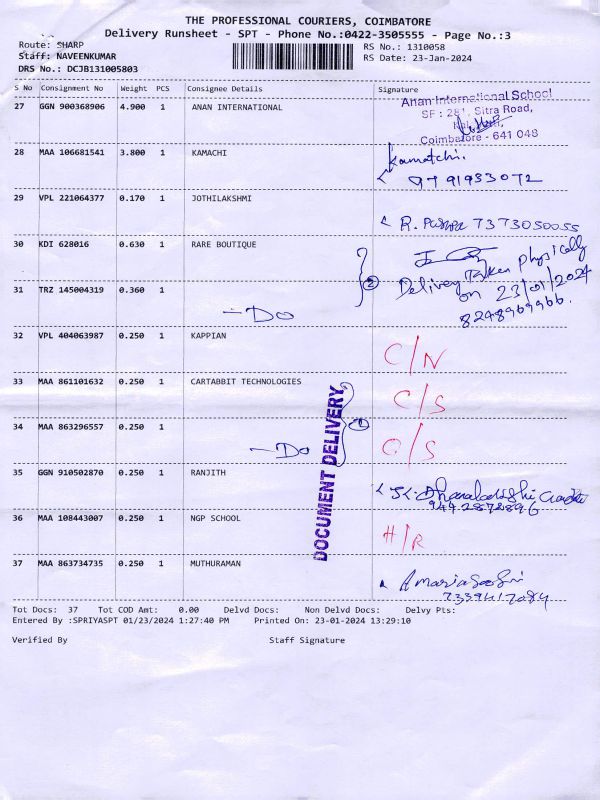 THE PROFESSIONAL COURIERS, COIMBATORE
Delivery Runsheet - SPT - Phone No.:0422-3505555 - Page No.:3
Route: SHARP
Staff: NAVEENKUMAR
DRS No.: DCJB131005803
RS No.: 1310058
RS Date: 23-Jan-2024
S No Consignment No Weight PCS Consignee Details Signature
27 GGN 900368906 4.900 1 ANAN INTERNATIONAL
Anan International School
SF : 281, Sitra Road,
Coimbatore - 641 048
28 MAA 106681541 3.800 1 KAMACHI
Kamatchi.
9791933072
29 VPL 221064377 0.170 1 JOTHILAKSHMI
R. 7373050055
30 KDI 628016 0.630 1 RARE BOUTIQUE
2
Delivery Taken physically
on 23/01/2024
8248969966.
31 TRZ 145004319 0.360 1
—Do
32 VPL 404063987 0.250 1 KAPPIAN
C/N
33 MAA 861101632 0.250 1 CARTABBIT TECHNOLOGIES
C/S
34 MAA 863296557 0.250 1
—Do
1
DOCUMENT DELIVERY
C/S
35 GGN 910502870 0.250 1 RANJITH
9442872896
36 MAA 108443007 0.250 1 NGP SCHOOL
H/R
37 MAA 863734735 0.250 1 MUTHURAMAN
7339417084
Tot Docs: 37 Tot COD Amt: 0.00 Delvd Docs: Non Delvd Docs: Delvy Pts:
Entered By :SPRIYASPT 01/23/2024 1:27:40 PM Printed On: 23-01-2024 13:29:10
Verified By Staff Signature